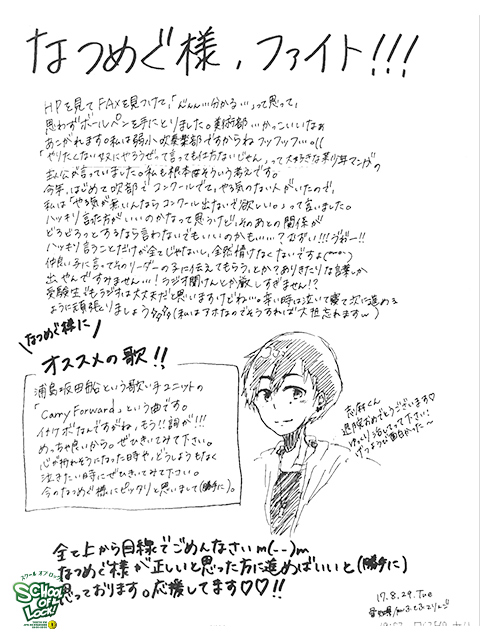 なつめぐ様、ファイト!!!
HPを見てFAXを見つけて、「んんん…分かる…」って思って、
思わずボールペンを手にとりました。美術部…かっこいいなぁ
あこがれます。私は弱小吹奏楽部ですからねフッフッフ…。((
「やりたくない奴にやろうぜって言っても仕方ないじゃん」って大好きな
主人公が言っていました。私も根本はそういう考えです。
今年、はじめて吹部でコンクールでて、やる気のない人がいたので、
私は「やる気が無いんならコンクール出ないで欲しい。」って言いました。
ハッキリ言った方がいいのかなって思うけど、そのあとの関係が
どろどろっとするなら言わないでもいいのかも……?むずい!!!うがー!!
ハッキリ言うことだけが全てじゃないし、全然情けなくないですよ
仲良い子に言ってそのリーダーの子に伝えてもらう、とか?ありきたりな言葉しか
出せんですみません…!ラジオ聞けんとか厳しすぎません!?
受験生でもラジオは大丈夫だと思いますけどね…。辛い時は泣いて寝て次に進める
ように頑張りましょう(私はアホなのでそうすれば大抵忘れますw)
なつめぐ様に
オススメの歌!!
浦島坂田船という歌い手ユニットの
「Carry Forward」という曲です。
イケボなんですがね、もう!!詞が!!!
めっちゃ良いから。ぜひきいてみて下さい。
心が折れそうになった時や、どうしようもなく
泣きたい時にぜひきいてみて下さい。
今のなつめぐ様にピッタリと思いまして(勝手に)。
志麻くん
退院おめでとうございます♡
ゆっくり治してって下さい!
げつようが面白かった〜
全て上から目線でごめんなさいm(--)m
なつめぐ様が正しいと思った方に進めばいいと(勝手に)
思っております。応援してます♡♡!!
17.8.29.Tue
スクール オブ ロック
SCHOOL OF LOCK!